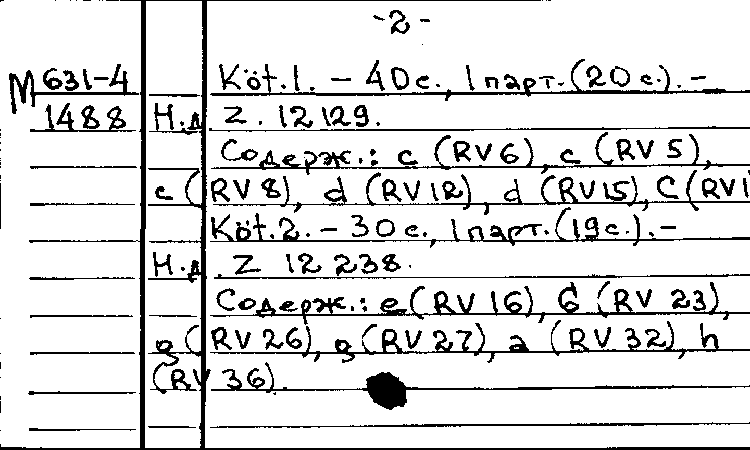 -2-
М 631-4 Köt.1. - 40с., 1 парт.(20с.). -
1488 Н.д. Z. 12129.
Содерж.: c (RV6), c (RV5),
c (RV8), d (RV12), d (RV15), C (RV1
Köt.2. - 30с., 1 парт.(19с.). -
Н.д. Z 12238.
Содерж.: e (RV 16), G (RV 23),
g (RV 26), g (RV 27), a (RV 32), h
(RV 36).